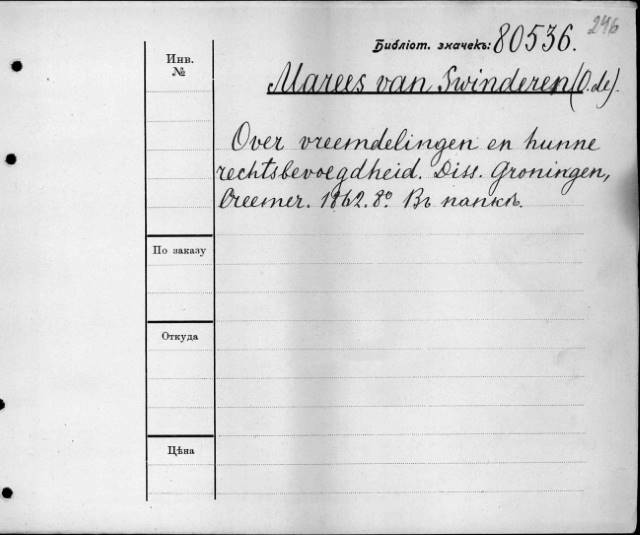 246
Библіот. значекъ: 80536.
Инв.
№
Marees van Swinderen (O. de).
Over vreemdelingen en hunne
rechtsbevoegdheid. Diss. Groningen,
1862. 8º. Въ папкѣ.
По заказу
Откуда
Цѣна